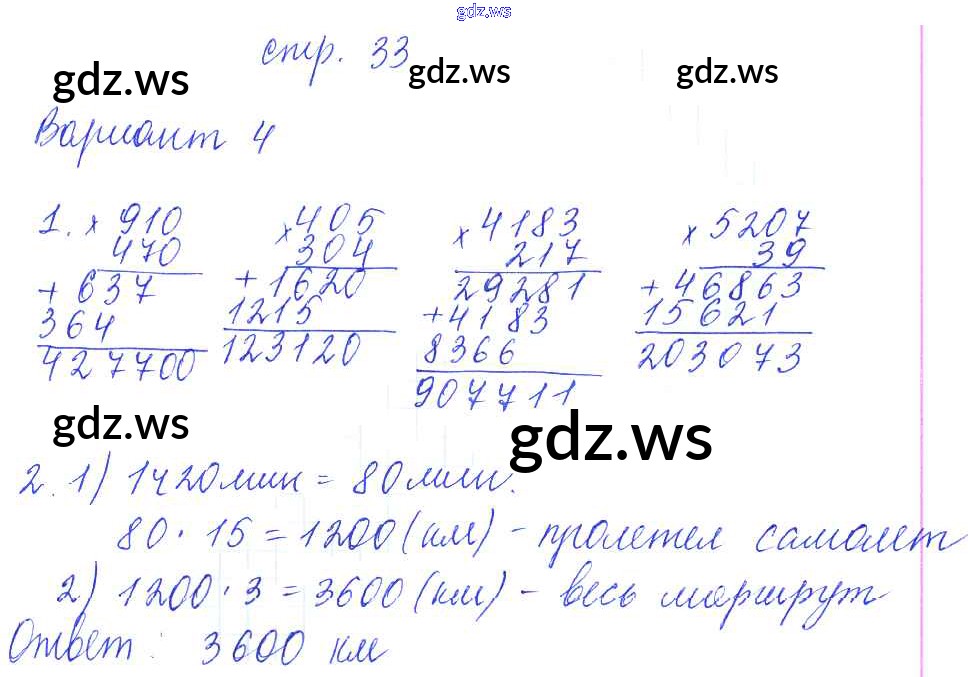 gdz.ws
стр. 33
gdz.ws gdz.ws gdz.ws
Вариант 4
1. × 910 × 405 × 4183 × 5207
470 304 217 39
+ 637 + 1620 29281 + 46863
364 1215 + 4183 15621
427700 123120 8366 203073
907711
gdz.ws gdz.ws
2. 1) 1ч20мин = 80мин.
80 · 15 = 1200 (км) - пролетел самолет
2) 1200 · 3 = 3600 (км) - весь маршрут
Ответ: 3600 км